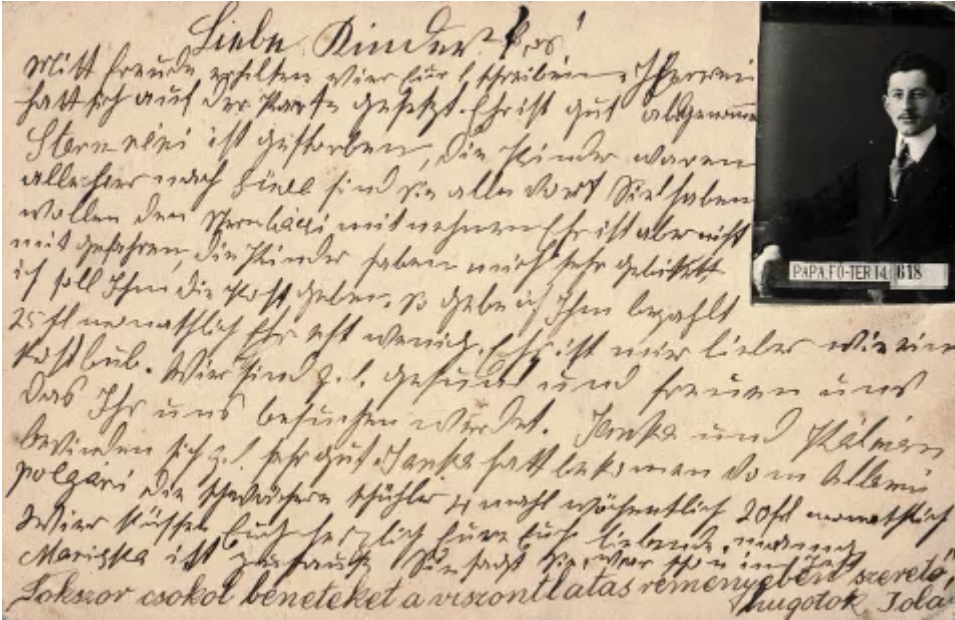 Liebe Kinder!
Mitt freude erhilten wier eur schreiben
hatt sich auf der gesetzt. Ehr ist gut abgenomen
Stern néni ist gestorben, die Kinder waren
alle hier nach sind sie alle dort Sie haben
wollen den Stern bácsi mit nehmen Ehr ist aber nicht
mit gefahren, die Kinder haben mich sehr gebittet
ich soll Ihm die Kost geben. so gebe ich Ihm bezahlt
25 fl monathlich Ehr eht wenig. Ehr ist mir lieber wie ein
Kostbub. Wier sind g. l. gesund und freuen uns
das Ihr uns besuchen werdet. Janka und Kálmán
bevinden sich g. l. sehr gut. Janka hatt bekomen vom Allami
polgári die schwächere schühler mahl wöchentlich 20 fl monathlich
Wier küssen Euch herzlich Eure Euch liebende
Mariska ist zuhause Sie sagt
Sokszor csokol beneteket a viszontlatás reményében szerető
hugotok Jola
PAPA FÖ-TER 14 618